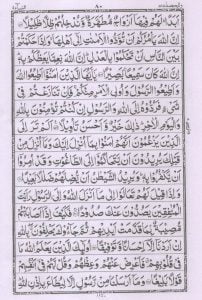 ٨٠
اَبَدًا لَهُمْ فِيْهَا اَزْوَاجٌ مُّطَهَّرَةٌ وَّنُدْخِلُهُمْ ظِلًّا ظَلِيْلًا
اِنَّ اللّٰهَ يَاْمُرُكُمْ اَنْ تُؤَدُّوا الْاَمٰنٰتِ اِلٰٓى اَهْلِهَا وَاِذَا حَكَمْتُمْ
بَيْنَ النَّاسِ اَنْ تَحْكُمُوْا بِالْعَدْلِ اِنَّ اللّٰهَ نِعِمَّا يَعِظُكُمْ بِهٖ
اِنَّ اللّٰهَ كَانَ سَمِيْعًۢا بَصِيْرًا يٰٓاَيُّهَا الَّذِيْنَ اٰمَنُوْٓا اَطِيْعُوا اللّٰهَ
وَاَطِيْعُوا الرَّسُوْلَ وَاُولِى الْاَمْرِ مِنْكُمْ فَاِنْ تَنَازَعْتُمْ فِيْ
شَيْءٍ فَرُدُّوْهُ اِلَى اللّٰهِ وَالرَّسُوْلِ اِنْ كُنْتُمْ تُؤْمِنُوْنَ بِاللّٰهِ
وَالْيَوْمِ الْاٰخِرِ ذٰلِكَ خَيْرٌ وَّاَحْسَنُ تَاْوِيْلًا اَلَمْ تَرَ اِلَى
الَّذِيْنَ يَزْعُمُوْنَ اَنَّهُمْ اٰمَنُوْا بِمَآ اُنْزِلَ اِلَيْكَ وَمَآ اُنْزِلَ مِنْ
قَبْلِكَ يُرِيْدُوْنَ اَنْ يَّتَحَاكَمُوْٓا اِلَى الطَّاغُوْتِ وَقَدْ اُمِرُوْٓا
اَنْ يَّكْفُرُوْا بِهٖ وَيُرِيْدُ الشَّيْطٰنُ اَنْ يُّضِلَّهُمْ ضَلٰلًۢا بَعِيْدًا
وَاِذَا قِيْلَ لَهُمْ تَعَالَوْا اِلٰى مَآ اَنْزَلَ اللّٰهُ وَاِلَى الرَّسُوْلِ رَاَيْتَ
الْمُنٰفِقِيْنَ يَصُدُّوْنَ عَنْكَ صُدُوْدًا فَكَيْفَ اِذَآ اَصَابَتْهُمْ
مُّصِيْبَةٌۢ بِمَا قَدَّمَتْ اَيْدِيْهِمْ ثُمَّ جَآءُوْكَ يَحْلِفُوْنَ بِاللّٰهِ
اِنْ اَرَدْنَآ اِلَّآ اِحْسَانًا وَّتَوْفِيْقًا اُولٰٓئِكَ الَّذِيْنَ يَعْلَمُ اللّٰهُ مَا
فِيْ قُلُوْبِهِمْ فَاَعْرِضْ عَنْهُمْ وَعِظْهُمْ وَقُلْ لَّهُمْ فِيْٓ اَنْفُسِهِمْ
قَوْلًۢا بَلِيْغًا وَمَآ اَرْسَلْنَا مِنْ رَّسُوْلٍ اِلَّا لِيُطَاعَ بِاِذْنِ اللّٰهِ